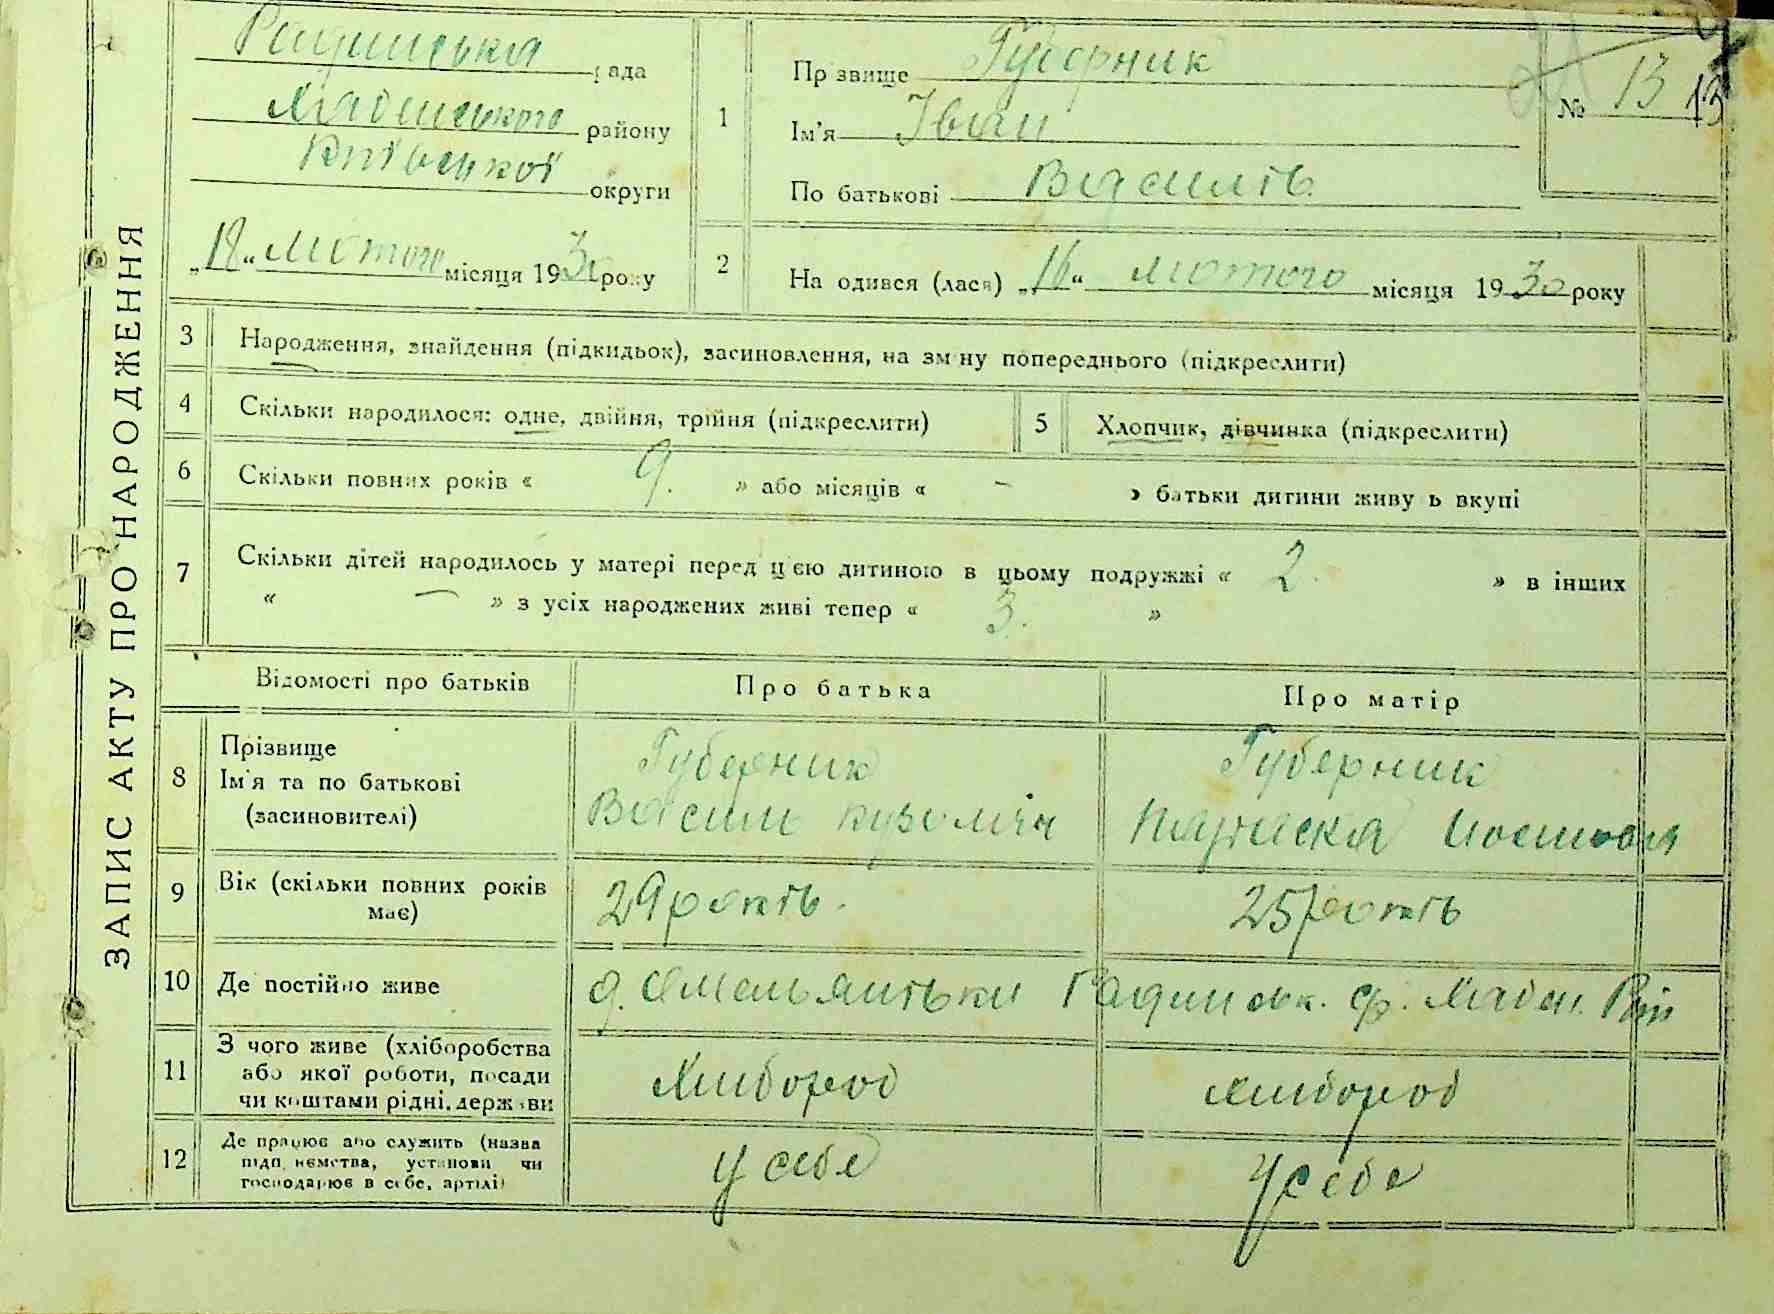 ЗАПИС АКТУ ПРО НАРОДЖЕННЯ
рада
району
округи
„18“ лютого місяця 1930 року
1
Прізвище Губерник
Ім'я Іван
По батькові Василів
№ 13 13
2
Народився (лася) „16“ лютого місяця 1930 року
3 Народження, знайдення (підкидьок), засиновлення, на зміну попереднього (підкреслити)
4 Скільки народилося: одне, двійня, трійня (підкреслити)
5 Хлопчик, дівчинка (підкреслити)
6 Скільки повних років « 9. » або місяців « - » батьки дитини живуть вкупі
7 Скільки дітей народилось у матері перед цією дитиною в цьому подружжі « 2. » в інших
« — » з усіх народжених живі тепер « 3. »
Відомості про батьків Про батька Про матір
8 Прізвище
Ім'я та по батькові
(засиновителі)
Губерник
Василь
Губерник
9 Вік (скільки повних років
має)
29 років.
25 років
10 Де постійно живе
11 З чого живе (хліборобства
або якої роботи, посади
чи коштами рідні, держави
Хлибороб
хлибороб
12 Де працює або служить (назва
підприємства, установи чи
господарює в себе, артілі)
у себе
у себе